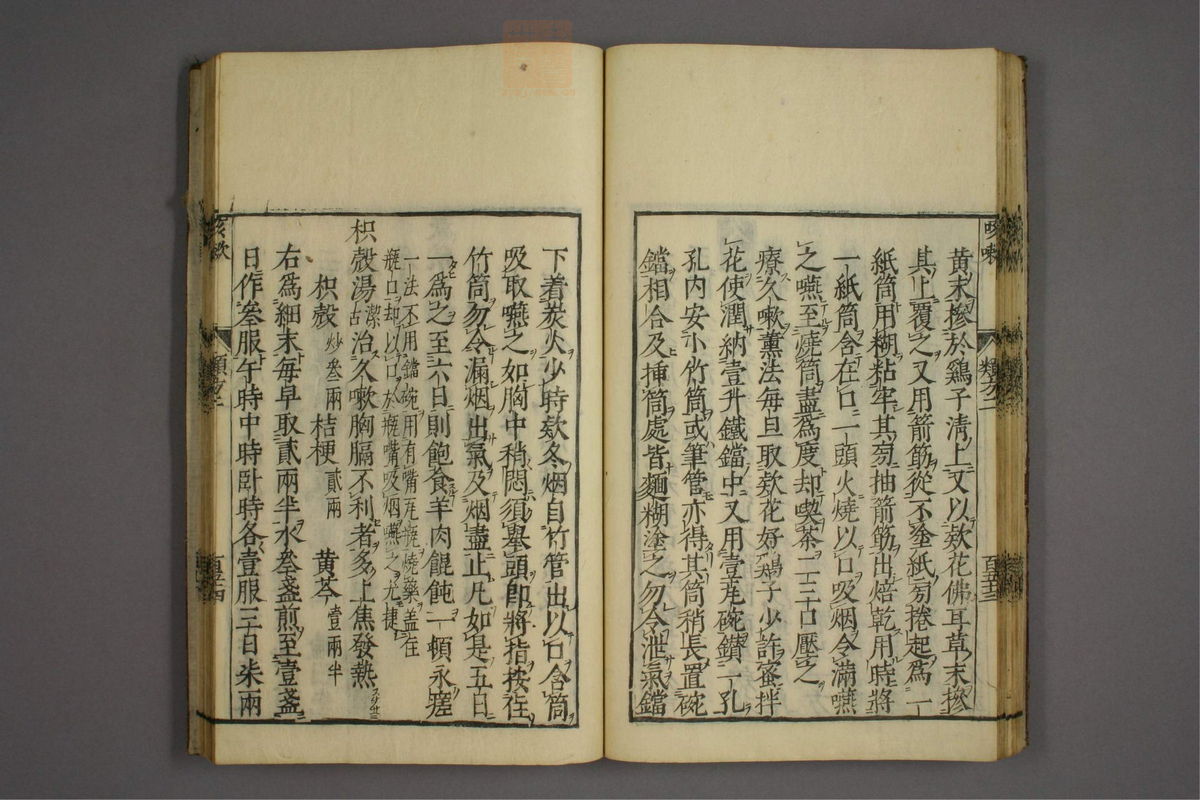 咳嗽 類方二 百五十三
黄末摻於鷄子清上又以欵花佛耳草末摻
其上覆之又用箭筯從不塗紙旁捲起爲一
紙筒用糊粘牢其旁抽箭筯出焙乾用時將
一紙筒含在口一頭火燒以口吸烟令滿嚥
之嚥至燒筒盡爲度却喫茶二三口壓之
療久嗽薫法毎旦取欵花好鷄子少許蜜拌
花使潤納壹升鐵鐺中又用壹瓦碗鑚一孔
孔内安小竹筒或筆管亦得其筒稍長置碗
鐺相合及挿筒處皆麵糊塗之勿令泄氣鐺
下着炭火少時欵冬烟自竹管出以口含筒
吸取嚥之如胸中稍悶須擧頭即將指按住
竹筒勿令漏烟出氣及烟盡止凡如是五日
一爲之至六日則飽食羊肉餛飩一頓永瘥
一法不用鐺碗用有嘴瓦瓶燒藥盖住
瓶口却以口於瓶嘴吸烟嚥之尤捷
枳殼湯 潔古 治久嗽胸膈不利者多上焦發熱
枳殼 炒叄兩 桔梗 貳兩 黄芩 壹兩半
右爲細末毎早取貳兩半水叄盞煎至壹盞
日作叄服午時申時卧時各壹服三日柒兩
咳嗽 類方二 百五十四